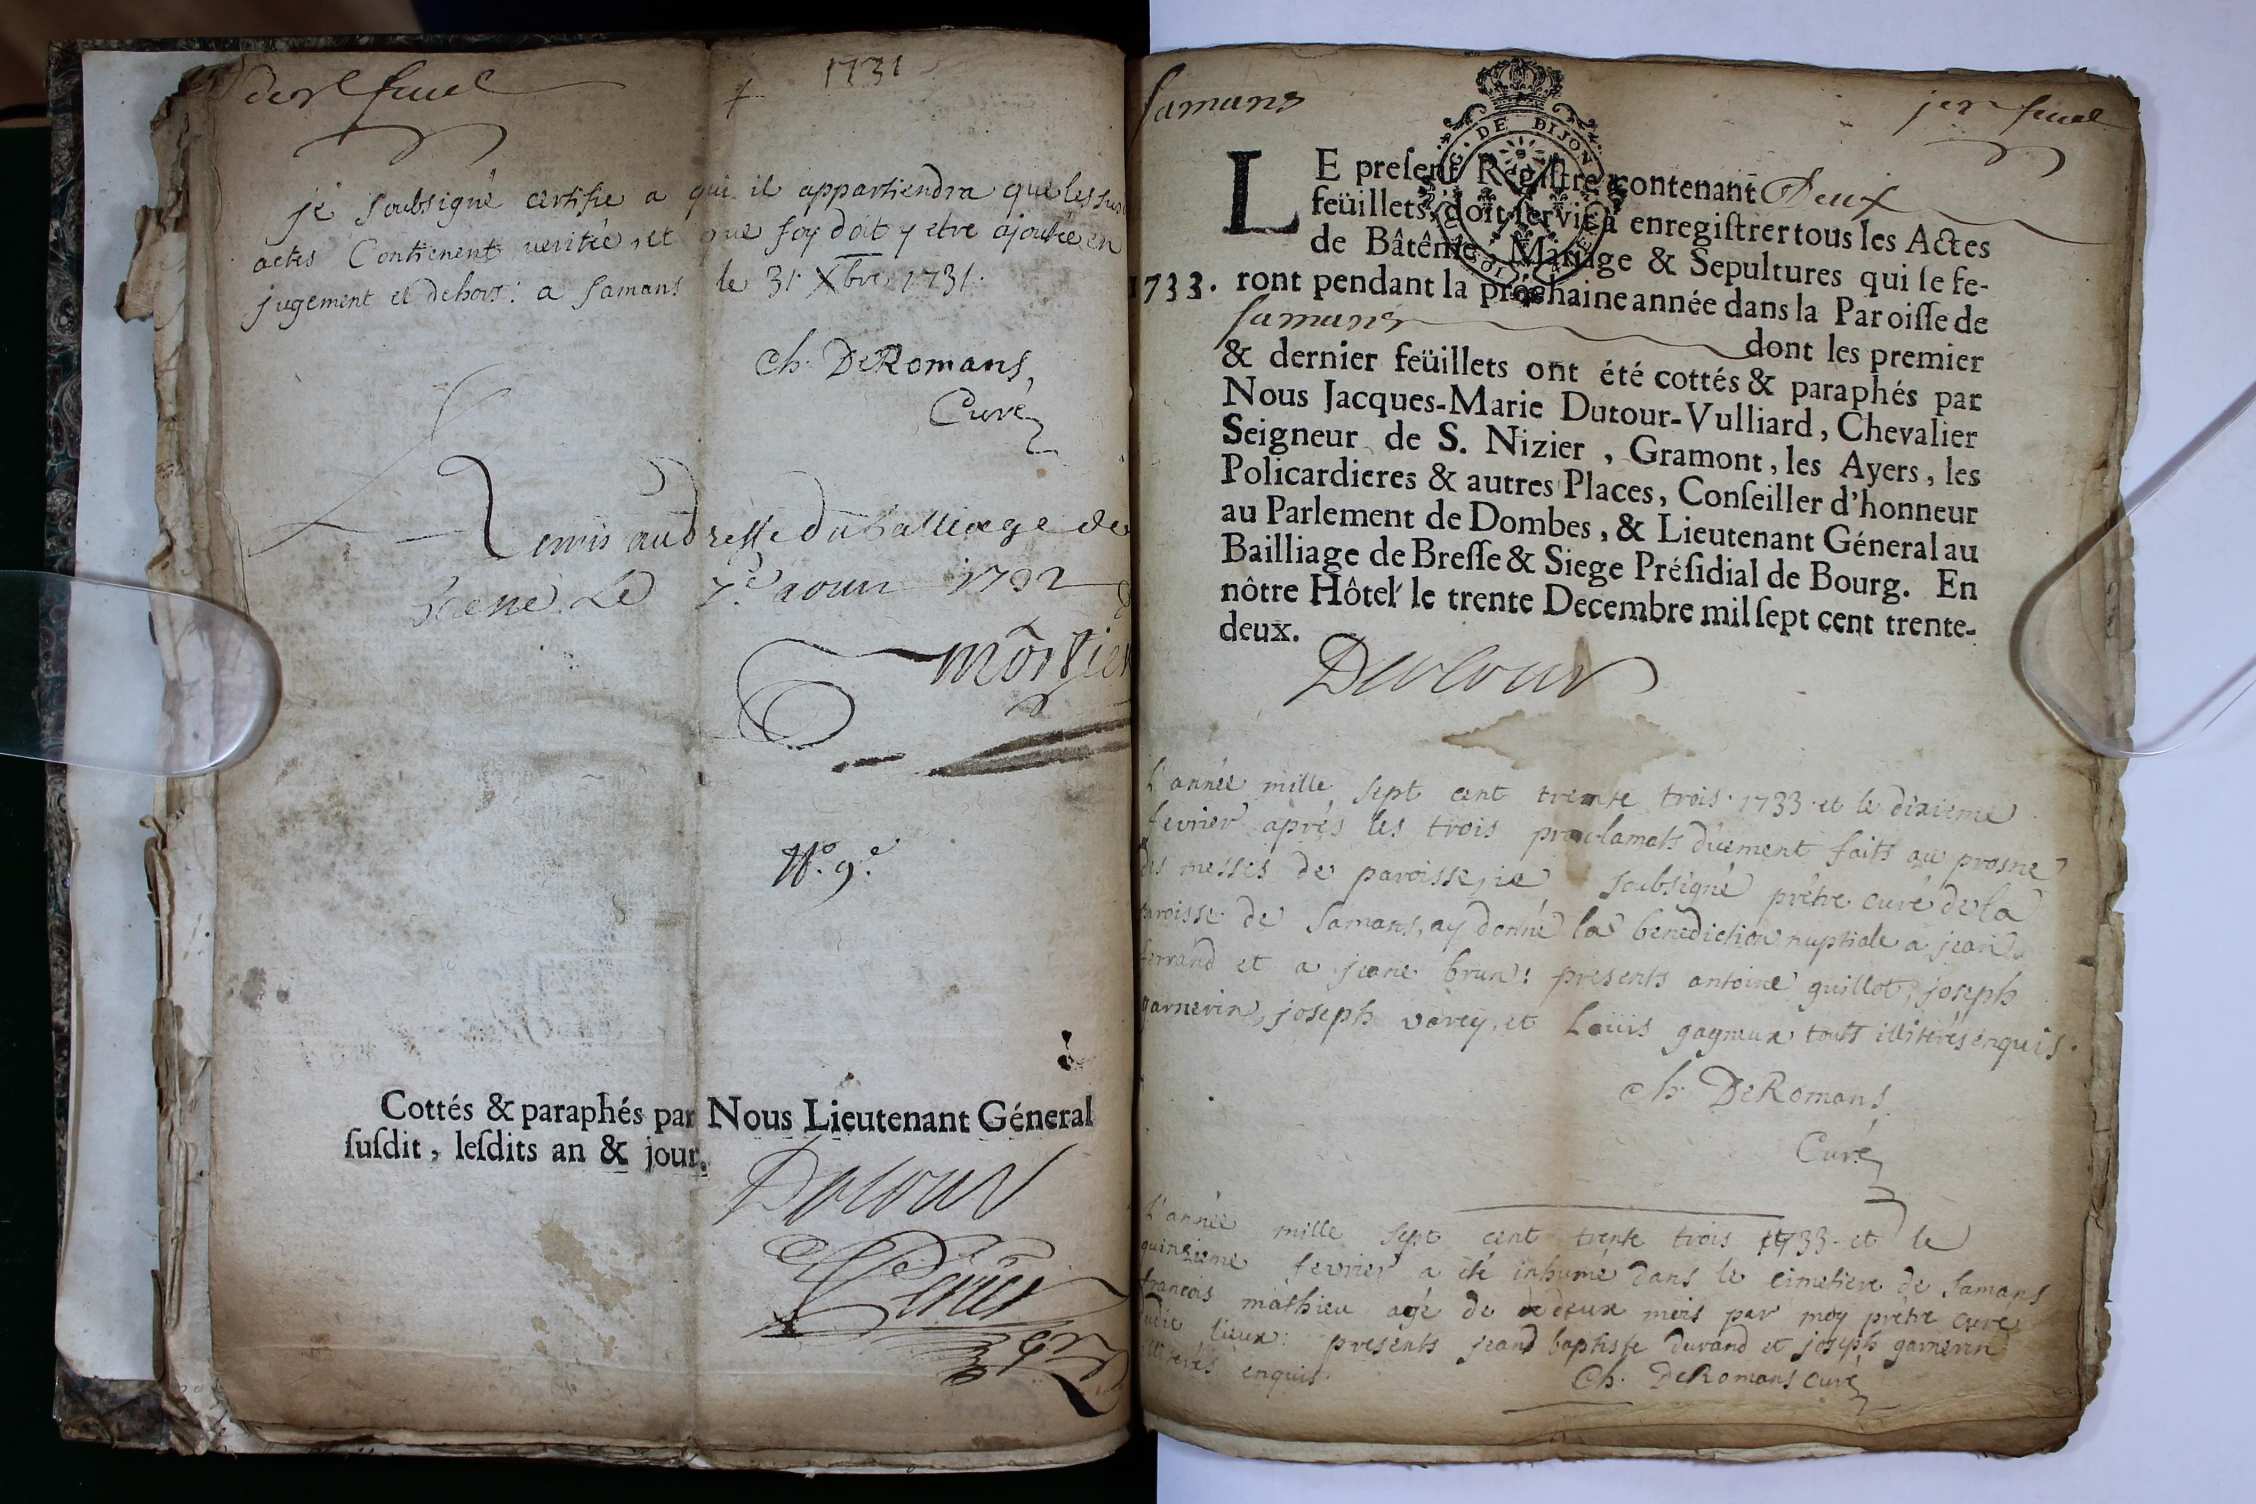 der feuel
1731
je soubsigné certifie a qui il appartiendra que les sus
actes Contienent veritée, et que foy doit y etre ajoutée en
jugement et dehors: a Samans le 31. Xbre 1731.
Ch. DeRomans,
Curé
Remis au Greffe du Balliage de
le 7e 1732
N°. 9.e
Cottés & paraphés par Nous Lieutenant Géneral
ſuſdit, leſdits an & jour.
Dutour
Perier
Samans
1er feuel
LE preſent Regiſtre contenant Deux
feüillets, doit ſervir à enregiſtrer tous les Actes
de Bâtême, Mariage & Sepultures qui ſe fe-
1733. ront pendant la prochaine année dans la Paroiſſe de
Samans dont les premier
& dernier feüillets ont été cottés & paraphés par
Nous Jacques-Marie Dutour-Vulliard, Chevalier
Seigneur de S. Nizier, Gramont, les Ayers, les
Policardieres & autres Places, Conſeiller d'honneur
au Parlement de Dombes, & Lieutenant Géneral au
Bailliage de Breſſe & Siege Préſidial de Bourg. En
nôtre Hôtel le trente Decembre mil ſept cent trente-
deux.
Dutour
L'année mille sept cent trente trois. 1733. et le dixieme
fevrier après les trois proclamats düement faits au prosne
des messes de paroisse, je soubsigné prêtre curé de la
paroisse de Samans, ay donné la benediction nuptiale a jean
ferrand et a jeane brun: presents antoine guillot, joseph
garnerin, joseph varey, et Loüis gagneux touts illiterés enquis.
Ch. DeRomans
Curé
L'année mille sept cent trente trois 1733. et le
quinzieme fevrier a été inhumé dans le cimetiere de Samans
francois mathieu agé de deux mois par moy prêtre curé
dudit lieux: presents jean baptiste durand et joseph garnerin
illiterés enquis.
Ch. DeRomans curé